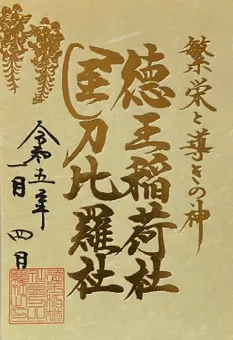 繁栄と導きの神
徳王稲荷社
金刀比羅社
令和五年
一月四日